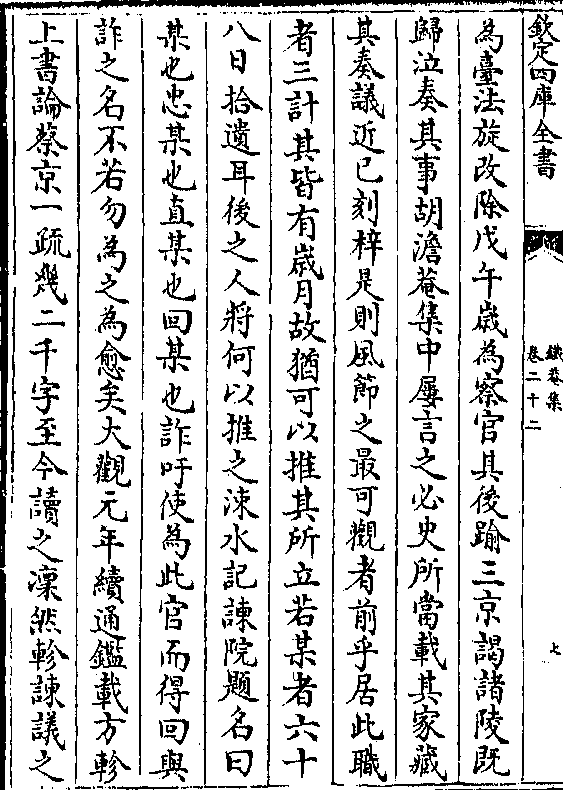 欽定四庫全書
鐵菴集
卷二十二
七
為臺法旋改除戊午歲為察官其後踰三京謁諸陵既
歸泣奏其事胡澹菴集中屢言之必史所當載其家藏
其奏議近已刻梓是則風節之最可觀者前乎居此職
者三計其皆有歲月故猶可以推其所立若某者六十
八日拾遺耳後之人將何以推之涑水記諫院題名曰
某也忠某也直某也回某也詐吁使為此官而得回與
詐之名不若勿為之為愈矣大觀元年續通鑑載方軫
上書論蔡京一疏幾二千字至今讀之凜然軫諫議之